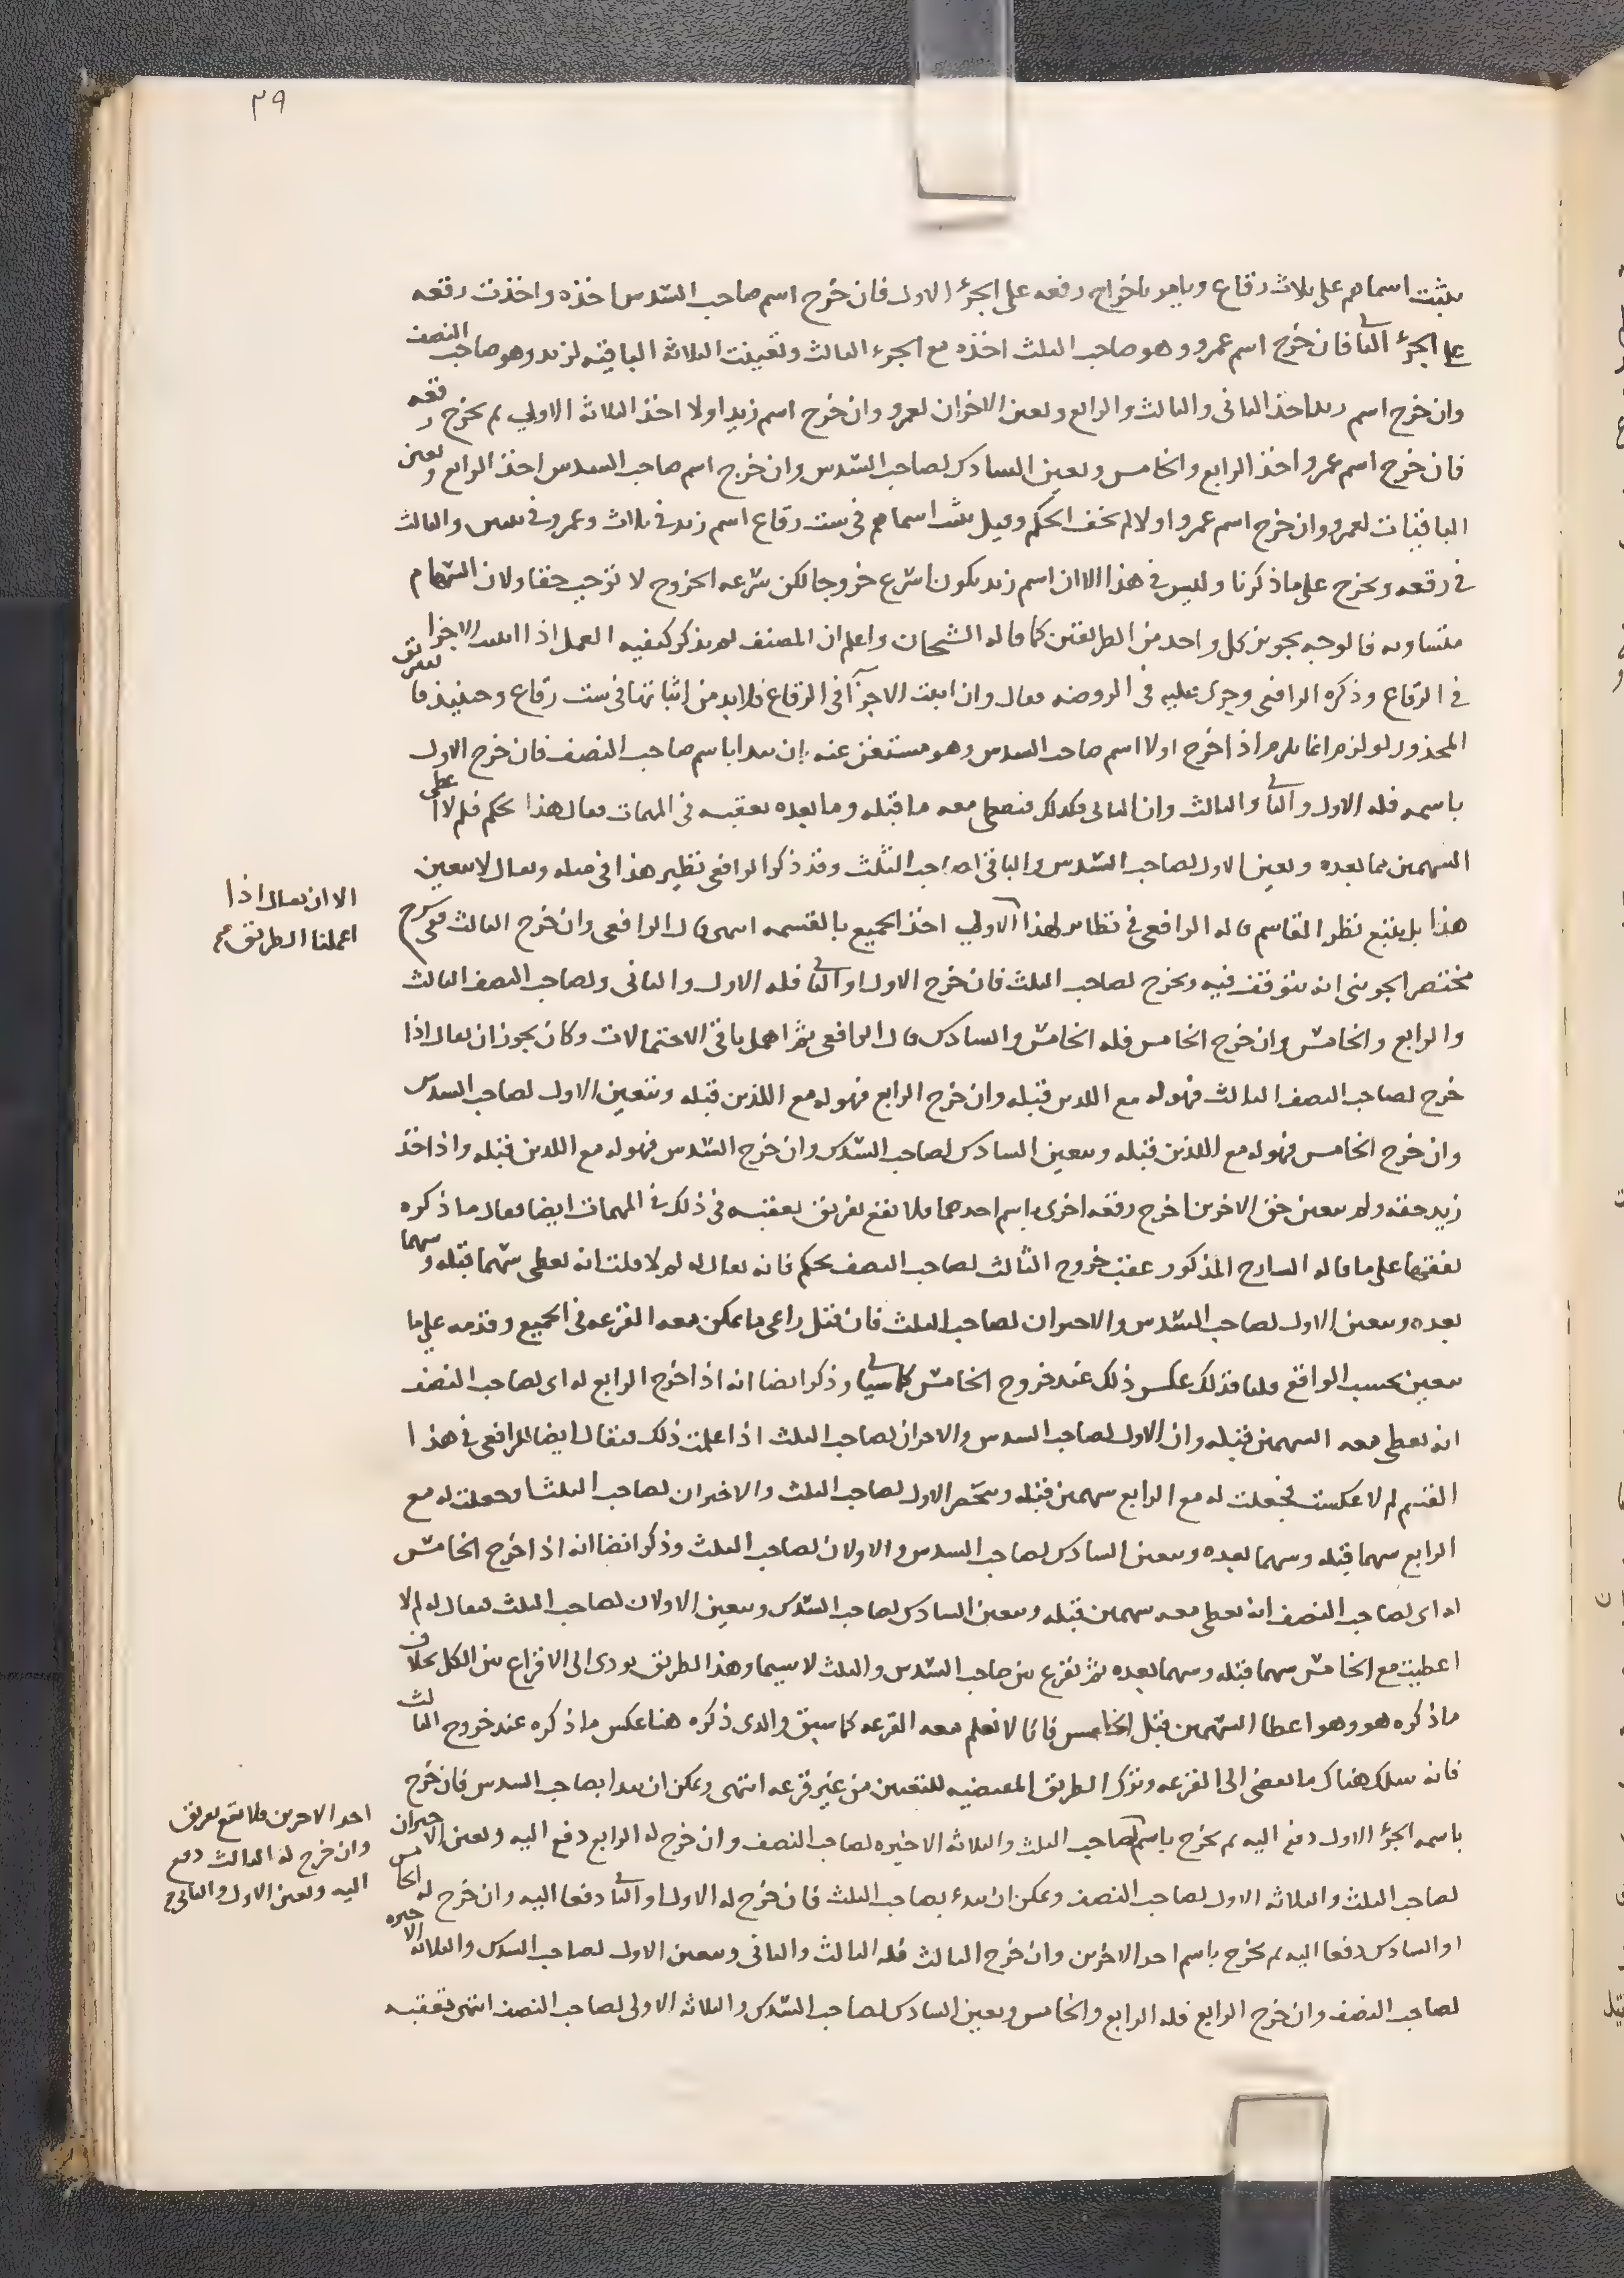 ٣٩
يثبت اسماهم على ثلاث رقاع ويامر باخراج رقعه على الجزء الاول فان خرج اسم صاحب السدس اخذه واخذت رقعه
على الجزء الثانى فان خرج اسم عمرو وهو صاحب الثلث اخذه مع الجزء الثالث وتعينت الثلاثة الباقيه لزيد وهو صاحب النصف
وان خرج اسم زيد اخذ الثانى والثالث والرابع وتعين الاخران لعمرو وان خرج اسم زيد اولا اخذ الثلاثة الاولى ثم يخرج رقعه
فان خرج اسم عمرو اخذ الرابع والخامس وتعين السادس لصاحب السدس وان خرج اسم صاحب السدس اخذ الرابع وتعين
الباقيات لعمرو وان خرج اسم عمرو اولا لم يخف الحكم وقيل يثبت اسماهم فى ست رقاع اسم زيد فى ثلاث وعمرو فى ثنتين والثالث
فى رقعه ويخرج على ما ذكرنا وليس فى هذا الا ان اسم زيد يكون اسرع خروجا لكن سرعه الخروج لا توجب حقا ولان السهام
متساويه فالوجه تجويز كل واحد من الطريقين كما قاله الشيخان واعلم ان المصنف لم يذكر كيفيه العمل اذا اثبت الاجزا
فى الرقاع وذكره الرافعى وجرى عليه فى الروضه فقال وان اثبت الاجزآ فى الرقاع فلابد من اثباتها فى ست رقاع وحينيذ فالتفريق
المحذور لو لزم انما يلزم اذا خرج اولا اسم صاحب السدس وهو مستغن عنه بان يبدا باسم صاحب النصف فان خرج الاول
باسمه فله الاول والثانى والثالث وان الثانى فكذلك فنعطى معه ما قبله وما بعده تعقبه فى المهمات فقال هذا تحكم فلم لا اعطى
السهمين مما بعده وتعين الاول لصاحب السدس والباقى لصاحب الثلث وقد ذكر الرافعى نظير هذا فى مثله وقال لا يتعين
هذا بل يتبع نظر القاسم قاله الرافعى فى نظاير لهذا الاولى اخذ الجميع بالقسمه انتهى قال الرافعى وان خرج الثالث ففى شرح
مختصر الجوينى انه يتوقف فيه ويخرج لصاحب الثلث فان خرج الاول او الثانى فله الاول والثانى ولصاحب النصف الثالث
والرابع والخامس وان خرج الخامس فله الخامس والسادس قال الرافعى ثم اهمل باقى الاحتمالات وكان يجوز ان يقال اذا
خرج لصاحب النصف الثالث فهو له مع اللذين قبله وان خرج الرابع فهو له مع اللذين قبله ويتعين الاول لصاحب السدس
وان خرج الخامس فهو له مع اللذين قبله ويتعين السادس لصاحب السدس وان خرج السدس فهو له مع اللذين قبله واذا اخذ
زيد حقه ولم يتعين حق الاخرين اخرج رقعه اخرى باسم احدهما فلا يقع تفريق تعقبه فى ذلك فى المهمات ايضا فقال ما ذكره
تفقها على ما قاله الشارح المذكور عقب خروج الثالث لصاحب النصف تحكم فانه يقال له لم لا قلت انه يعطى سهما قبله وسهما
بعده ويتعين الاول لصاحب السدس والاخيران لصاحب الثلث فان قيل راعى ما يمكن معه القرعه فى الجميع وقدمه على ما
يتعين بحسب الواقع قلنا فذلك عكس ذلك عند خروج الخامس كما سياتى وذكر ايضا انه اذا خرج الرابع له اى لصاحب النصف
انه يعطى معه السهمين قبله وان الاول لصاحب السدس والاخران لصاحب الثلث اذا علمت ذلك فيقال ايضا للرافعى فى هذا
القسم لم لا عكست فجعلت له مع الرابع سهمين قبله الاول لصاحب الثلث والاخيران لصاحب الثلث او جعلت له مع
الرابع سهما قبله وسهما بعده ويتعين السادس لصاحب السدس والاولان لصاحب الثلث وذكر ايضا انه اذا خرج الخامس
له اى لصاحب النصف انه يعطى معه سهمين قبله ويتعين السادس لصاحب السدس ويتعين الاولان لصاحب الثلث فيقال له لم لا
اعطيت مع الخامس سهما قبله وسهما بعده ثم تقرع بين صاحب السدس والثلث لاسيما وهذا الطريق يودى الى الاقراع بين الكل بخلاف
ما ذكره هو وهو اعطا السهمين قبل الخامس فانا لا نعلم معه القرعه كما سبق والذى ذكره هنا عكس ما ذكره عند خروج الثالث
فانه سلك هناك ما يفضى الى القرعه وترك الطريق المقتضيه للتعيين من غير قرعه انتهى ويمكن ان يبدا بصاحب السدس فان خرج
باسمه الجزء الاول دفع اليه ثم يخرج باسم صاحب الثلث والثلاثه الاخيره لصاحب النصف وان خرج له الرابع دفع اليه وتعين الاخيران
لصاحب الثلث والثلاثه الاول لصاحب النصف ويمكن ان يبدء بصاحب الثلث فان خرج له الاول او الثانى دفعا اليه وان خرج له الخامس
او السادس دفعا اليه ثم يخرج باسم احد الاخرين وان خرج الثالث فله الثالث والثانى ويتعين الاول لصاحب السدس والثلاثه الاخيره
لصاحب النصف وان خرج الرابع فله الرابع والخامس وتعين السادس لصاحب السدس والثلاثه الاولى لصاحب النصف انتهى تعقبه
الا ان يقال اذا
اعملنا الطريق
احد الاخرين فلا يقع تفريق
وان خرج له الثالث دفع
اليه وتعين الاول والثانى